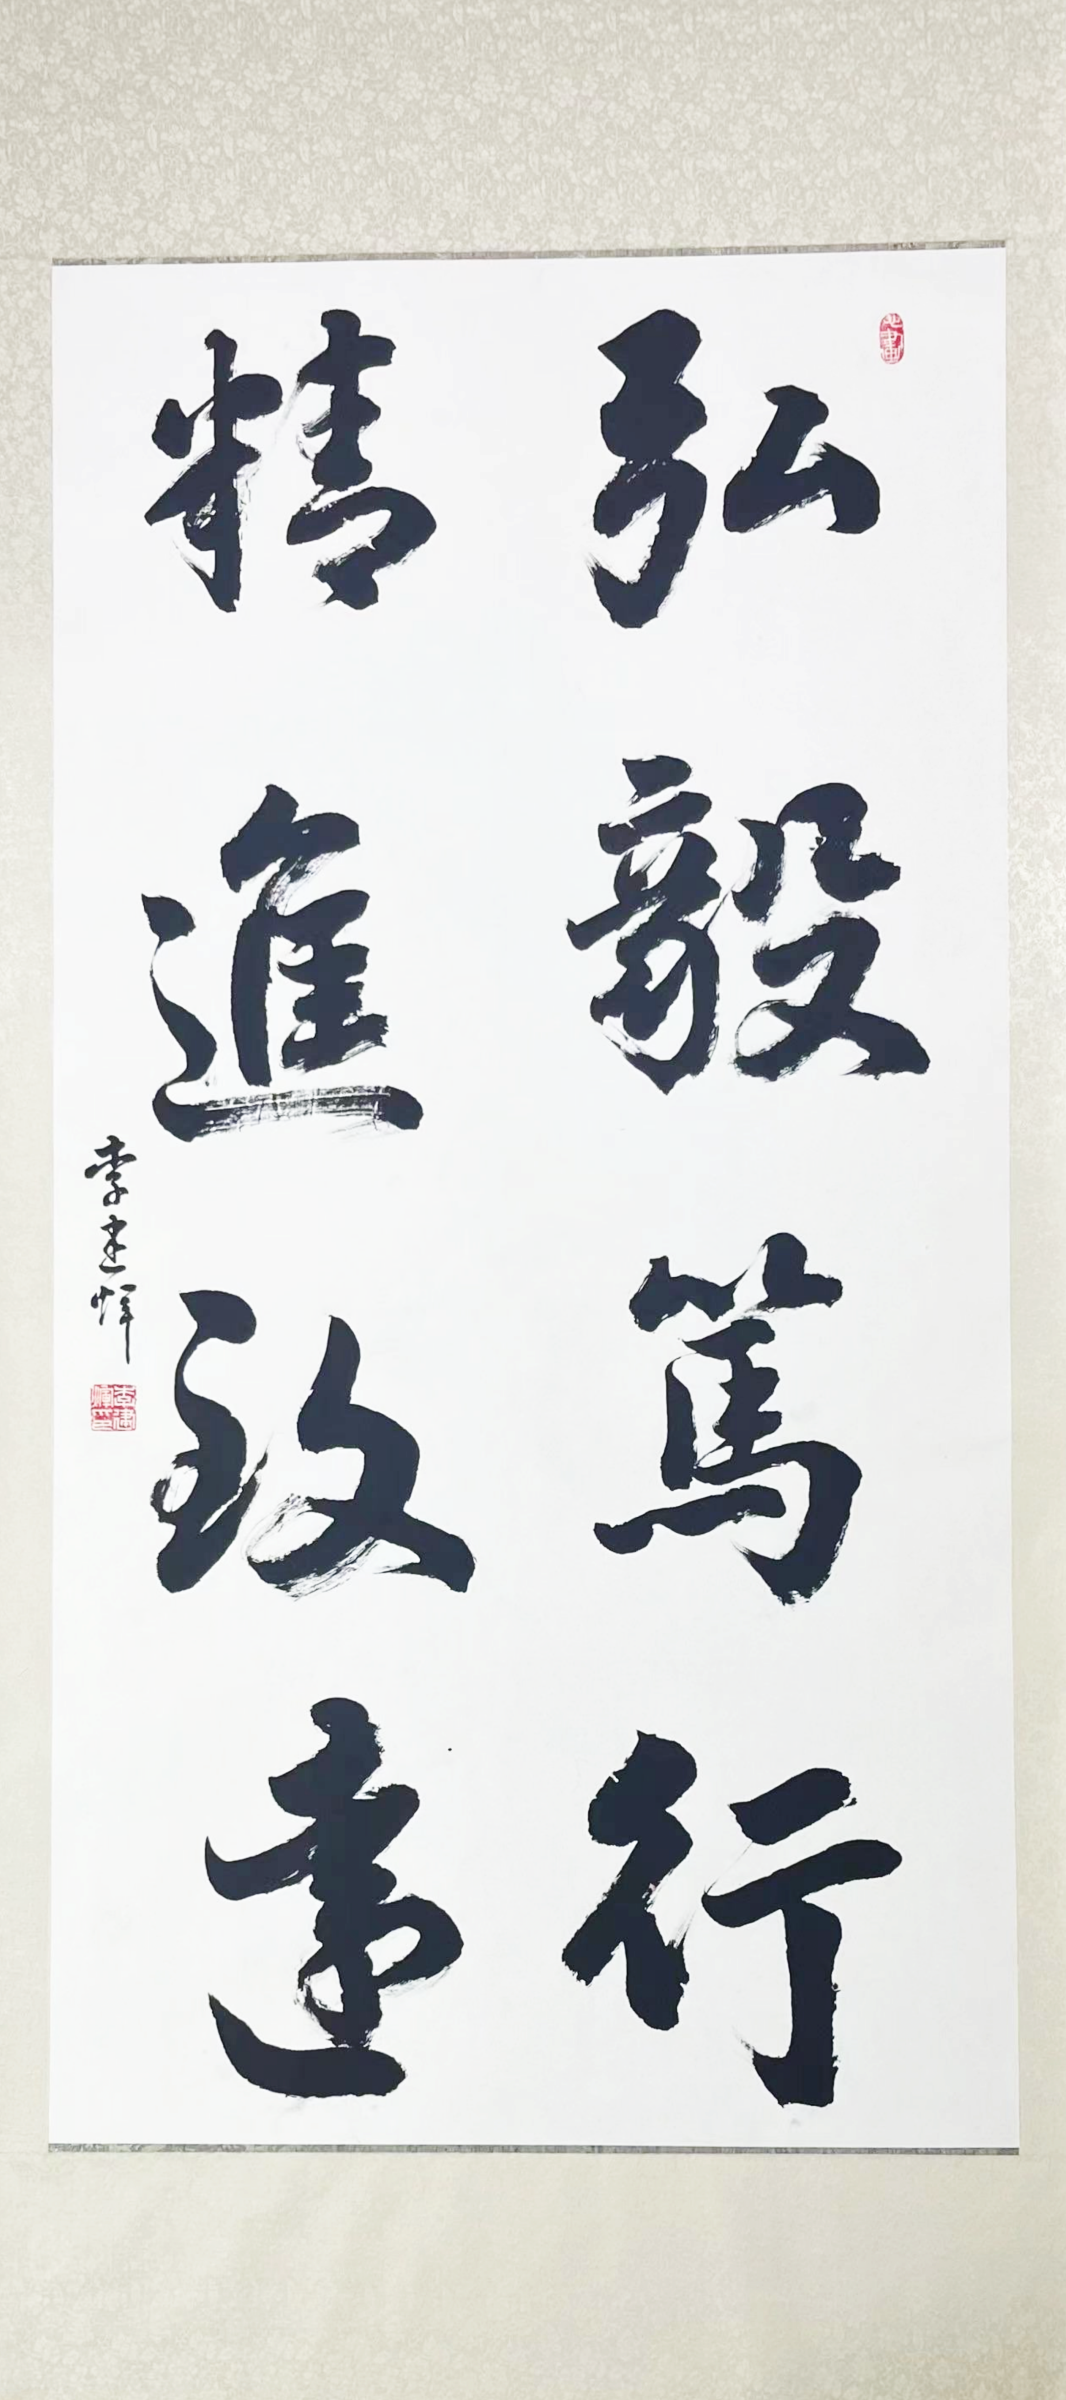 弘毅篤行
精進致遠
李建煇